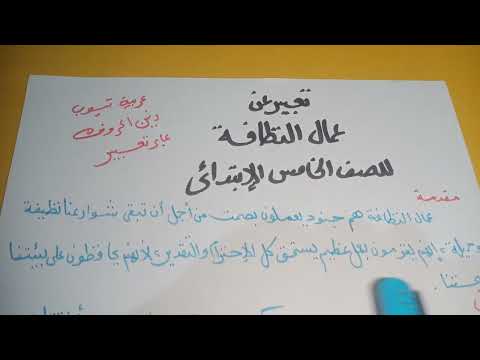 تعبير عن
عمال النظافة
للصف الخامس الإبتدائى
عربية تيوب
وبن الحروف
عايز تعبير
مقدمة
عمال النظافة هم جنود يعملون بصمت من أجل أن تبقى شوارعنا نظيفة
وجميلة، إنهم يقومون بعمل عظيم يستحق كل الاحترام والتقدير، لأنهم يحافظون على بيئتنا